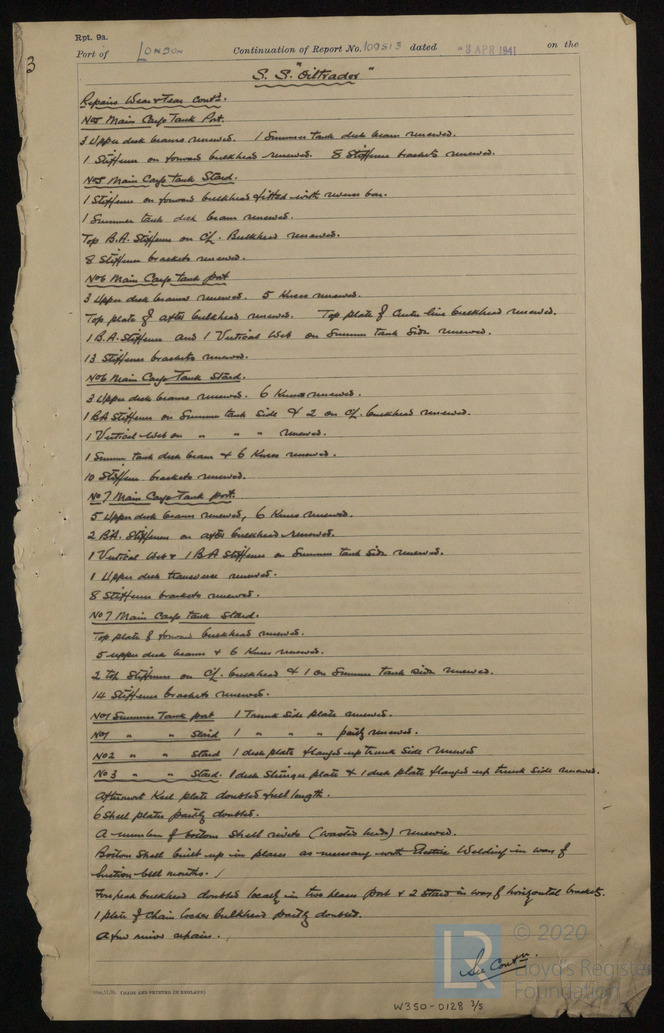 Rpt. 9a.
Port of London Continuation of Report No. 109513 dated -3 APR 1941 on the
3
S.S. "Oiltrader"
Repairs Wear & Tear contd.
No5 Main Cargo Tank Port.
3 Upper deck beams renewed. 1 Summer tank deck beam renewed.
1 Stiffener on forward bulkhead renewed. 8 Stiffener brackets renewed.
No5 Main Cargo Tank Stard.
1 Stiffener on forward bulkhead fitted with reverse bar.
1 Summer tank deck beam renewed.
Top B.A. Stiffener on C/L. Bulkhead renewed.
8 Stiffener brackets renewed.
No6 Main Cargo Tank port
3 Upper deck beams renewed. 5 Knees renewed.
Top plate of after bulkhead renewed. Top plate of Center line bulkhead renewed.
1 B.A. Stiffener and 1 Vertical Web on Summer tank side renewed.
13 Stiffener brackets renewed.
No6 Main Cargo Tank Stard.
3 Upper deck beams renewed. 6 Knees renewed.
1 BA Stiffener on Summer tank side & 2 on C/L bulkhead renewed.
1 Vertical Web on " " " renewed.
1 Summer tank deck beam & 6 Knees renewed.
10 Stiffener brackets renewed.
No 7 Main Cargo Tank port.
5 Upper deck beams renewed, 6 Knees renewed.
2 BA. Stiffeners on after bulkhead renewed.
1 Vertical Web & 1 BA Stiffener on Summer tank side renewed.
1 Upper deck transverse renewed.
8 Stiffener brackets renewed.
No 7 Main Cargo tank Stard.
Top plate of forward bulkhead renewed.
5 upper deck beams & 6 Knees renewed.
2 top Stiffeners on C/L. bulkhead & 1 on Summer tank side renewed.
14 Stiffener brackets renewed.
No1 Summer Tank port 1 Trunk Side plate renewed.
No1 " " Stard 1 " " " partly renewed.
No2 " " Stard 1 deck plate flanged up trunk side renewed
No 3 " " Stard. 1 deck Stringer plate & 1 deck plate flanged up trunk side renewed.
Aftermost Keel plate doubled full length.
6 Shell plates partly doubled.
A number of bottom shell rivets (wasted heads) renewed.
Bottom Shell built up in places as necessary with Electric Welding in way of
Suction bell mouths.
Forepeak bulkhead doubled locally in two places Port & 2 Stard in way of horizontal brackets.
1 plate of Chain locker bulkhead partly doubled.
A few minor repairs.
See Contn.
(MADE AND PRINTED IN ENGLAND)
© 2020
Lloyd's Register
Foundation
LR
W350-0128 3/5